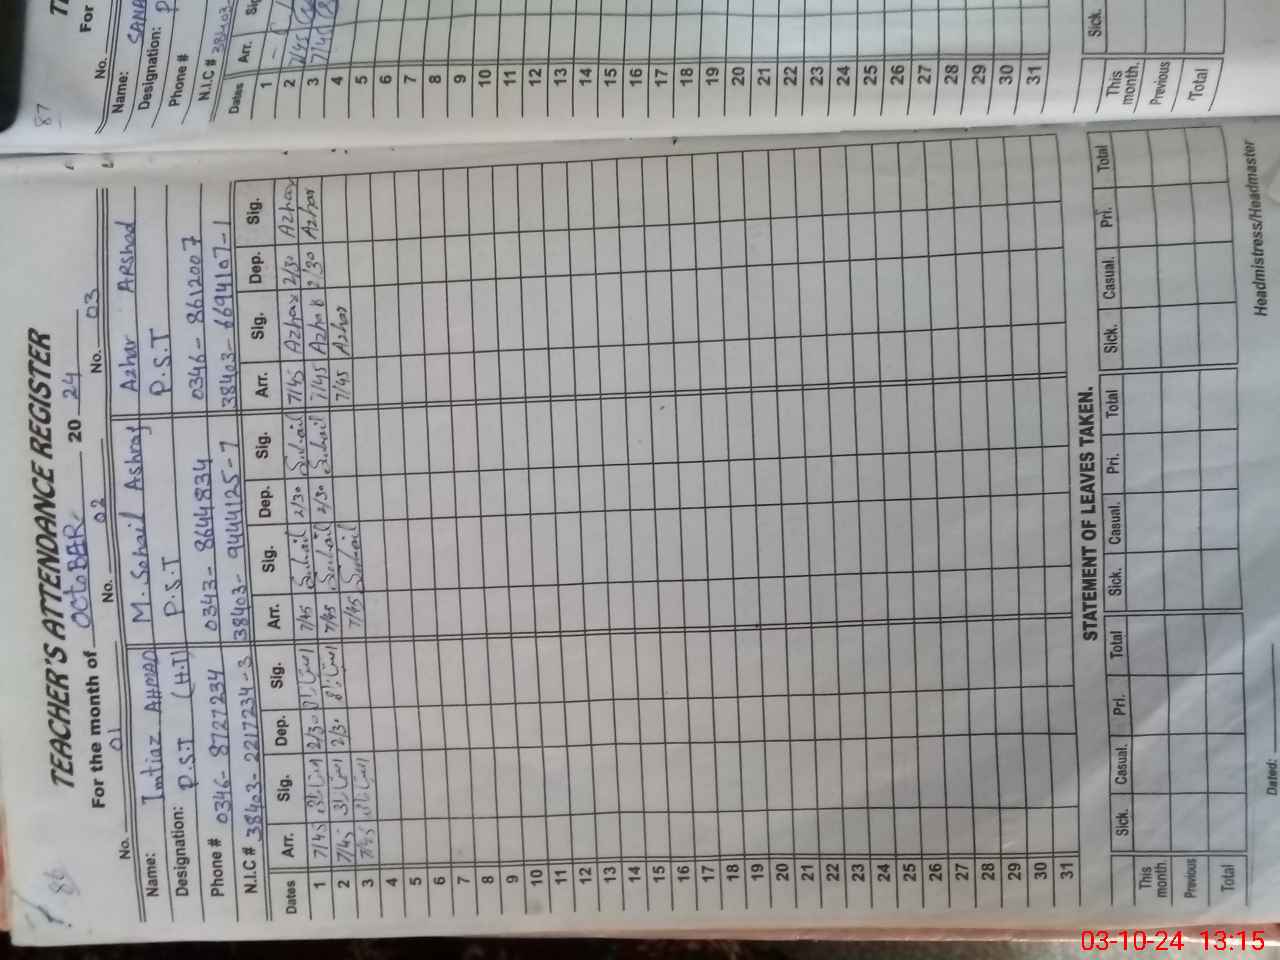 86
TEACHER'S ATTENDANCE REGISTER
For the month of OctoBAR 20 24
No. 01 No. 02 No. 03
Name: Imtiaz AHMAD M. Sohail Ashraf Azhar ARshad
Designation: P.S.T (H.T) P.S.T P.S.T
Phone # 0346-8727234 0343-8644834 0346-8612007
N.I.C # 38403-2217234-3 38403-9444125-7 38403-6694107-1
Dates Arr. Sig. Dep. Sig. Arr. Sig. Dep. Sig. Arr. Sig. Dep. Sig.
1 7/45 2/30 7/45 Sohail 2/30 Sohail 7/45 Azhar 2/30 Azhar
2 7/45 2/30 7/45 Sohail 2/30 Sohail 7/45 Azhar 2/30 Azhar
3 7/45 7/45 Sohail 7/45 Azhar
4
5
6
7
8
9
10
11
12
13
14
15
16
17
18
19
20
21
22
23
24
25
26
27
28
29
30
31
STATEMENT OF LEAVES TAKEN.
Sick. Casual. Pri. Total Sick. Casual. Pri. Total Sick. Casual. Pri. Total
This month
Previous
Total
Dated: Headmistress/Headmaster
87
For
No.
Name: SANA
Designation: P
Phone #
N.I.C # 38403
Dates Arr.
1 -
2 7/45
3 7/45
4
5
6
7
8
9
10
11
12
13
14
15
16
17
18
19
20
21
22
23
24
25
26
27
28
29
30
31
Sick.
This month.
Previous
Total
03-10-24 13:15